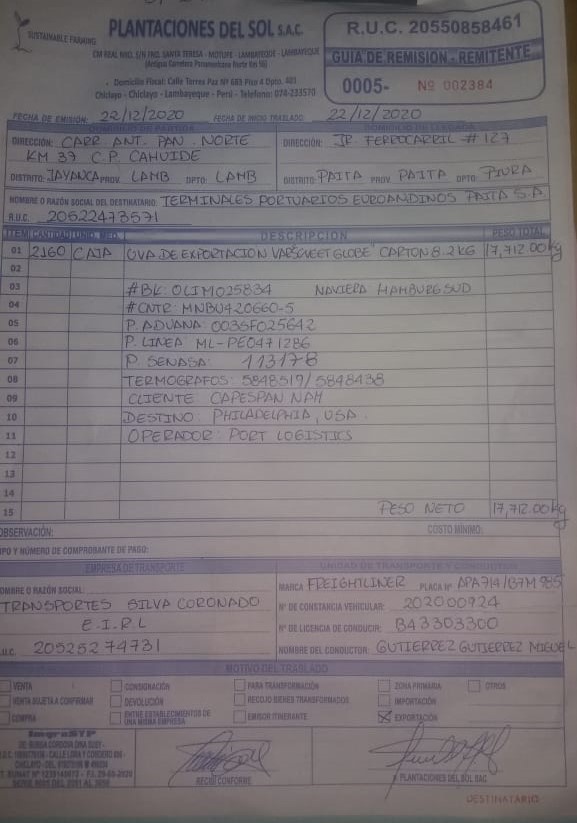 SUSTAINABLE FARMING
PLANTACIONES DEL SOL S.A.C.
CAR REAL NRO. S/N FND. SANTA TERESA - MOTUPE - LAMBAYEQUE - LAMBAYEQUE
(Antigua Carretera Panamericana Norte Km 96)
Domicilio Fiscal: Calle Torres Paz Nº 683 Piso 4 Dpto. 401
Chiclayo - Chiclayo - Lambayeque - Perú - Telefono: 074-233570
R.U.C. 20550858461
GUIA DE REMISION - REMITENTE
0005- Nº 002384
FECHA DE EMISIÓN: 22/12/2020 FECHA DE INICIO TRASLADO: 22/12/2020
DOMICILIO DE PARTIDA DOMICILIO DE LLEGADA
DIRECCIÓN: CARR. ANT. PAN. NORTE DIRECCIÓN: JR. FERROCARRIL # 127
KM 37 C.P. CAHUIDE
DISTRITO: JAYANCA PROV. LAMB DPTO: LAMB DISTRITO: PAITA PROV. PAITA DPTO: PIURA
NOMBRE O RAZÓN SOCIAL DEL DESTINATARIO: TERMINALES PORTUARIOS EUROANDINOS PAITA S.A
R.U.C. 20522473571
ITEM CANTIDAD UNID. MED. DESCRIPCIÓN PESO TOTAL
01 2160 CAJA UVA DE EXPORTACION VAR "SWEET GLOBE" CARTON 8.2 KG 17,712.00 kg
02
03 #BK: OLIM025834 NAVIERA HAMBURG SUD
04 #CNTR: MNBU420660-5
05 P. ADUANA: 0035F025642
06 P. LINEA: ML-PE0471286
07 P. SENASA: 113178
08 TERMOGRAFOS: 5848517/5848438
09 CLIENTE: CAPESPAN NAH
10 DESTINO: PHILADELPHIA, USA.
11 OPERADOR: PORT LOGISTICS
12
13
14
15 PESO NETO 17,712.00 kg
OBSERVACIÓN: COSTO MÍNIMO:
IPO Y NÚMERO DE COMPROBANTE DE PAGO:
EMPRESA DE TRANSPORTE UNIDAD DE TRANSPORTE Y CONDUCTOR
OMBRE O RAZÓN SOCIAL: MARCA FREIGHTLINER PLACA Nº APA714/B7M 985
TRANSPORTES SILVA CORONADO Nº DE CONSTANCIA VEHICULAR: 202000924
E.I.R.L Nº DE LICENCIA DE CONDUCIR: B43303300
.U.C. 20525274731 NOMBRE DEL CONDUCTOR: GUTIERREZ GUTIERREZ MIGUEL
MOTIVO DEL TRASLADO
VENTA CONSIGNACIÓN PARA TRANSFORMACIÓN ZONA PRIMARIA OTROS
VENTA SUJETA A CONFIRMAR DEVOLUCIÓN RECOJO BIENES TRANSFORMADOS IMPORTACIÓN
COMPRA ENTRE ESTABLECIMIENTOS DE UNA MISMA EMPRESA EMISOR ITINERANTE EXPORTACIÓN
RECIBÍ CONFORME P. PLANTACIONES DEL SOL SAC
DESTINATARIO